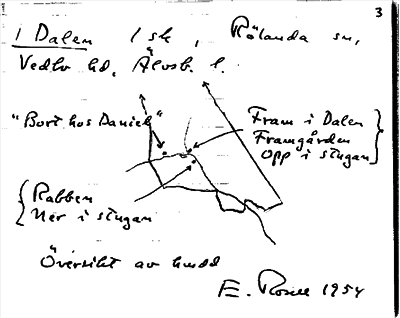 3
1 Dalen 1 sk, Rölanda sn,
Vedbo hd, Älvsb. l.
"Bort hos Daniel"
Fram i Dalen
Framgården
Opp i stugan
Rabben
Ner i stugan
Översikt av
E. 1954